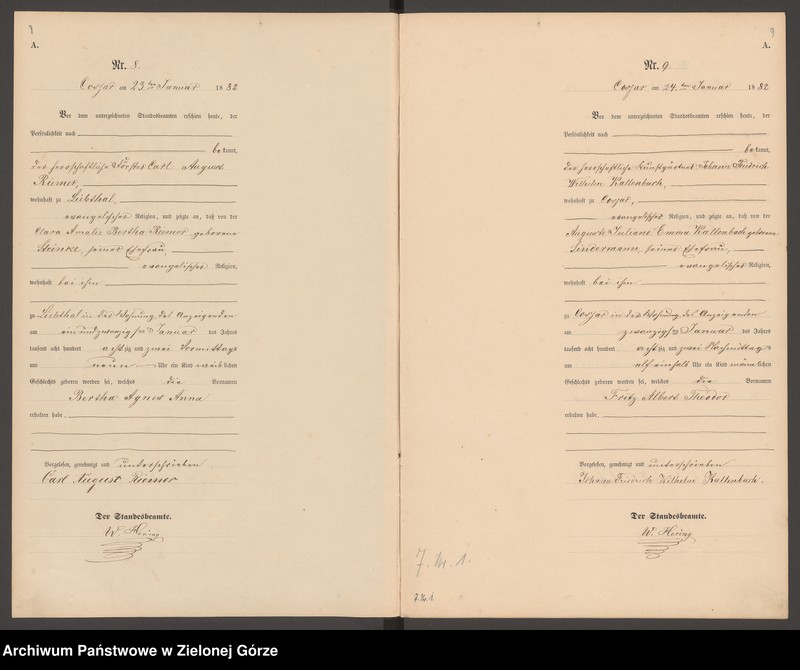 8
A.
Nr. 8.
Cossar am 23ten Januar 1882
Vor dem unterzeichneten Standesbeamten erschien heute, der
Persönlichkeit nach
bekannt,
der herrschaftliche Förster Carl August
Riemer,
wohnhaft zu Liebthal,
evangelischer Religion, und zeigte an, daß von der
Clara Amalie Bertha Riemer geborene
Steincke, seiner Ehefrau,
evangelischer Religion,
wohnhaft bei ihm
zu Liebthal in der Wohnung des Anzeigenden
am einundzwanzigsten Januar des Jahres
tausend acht hundert achtzig und zwei Vormittags
um neun Uhr ein Kind weiblichen
Geschlechts geboren worden sei, welches die Vornamen
Bertha Agnes Anna
erhalten habe.
Vorgelesen, genehmigt und unterschrieben
Carl August Riemer
Der Standesbeamte.
W. Hering
9
A.
Nr. 9
Cossar am 24ten Januar 1882
Vor dem unterzeichneten Standesbeamten erschien heute, der
Persönlichkeit nach
bekannt,
der herrschaftliche Kunstgärtner Johann Friedrich
Wilhelm Kaltenbach,
wohnhaft zu Cossar,
evangelischer Religion, und zeigte an, daß von der
Auguste Juliane Emma Kaltenbach geborene
Lindermann, seiner Ehefrau,
evangelischer Religion,
wohnhaft bei ihm
zu Cossar in der Wohnung des Anzeigenden
am zwanzigsten Januar des Jahres
tausend acht hundert achtzig und zwei Nachmittags
um elf einhalb Uhr ein Kind männlichen
Geschlechts geboren worden sei, welches die Vornamen
Fritz Albert Theodor
erhalten habe.
Vorgelesen, genehmigt und unterschrieben
Johann Friedrich Wilhelm Kaltenbach.
Der Standesbeamte.
W. Hering
Archiwum Państwowe w Zielonej Górze